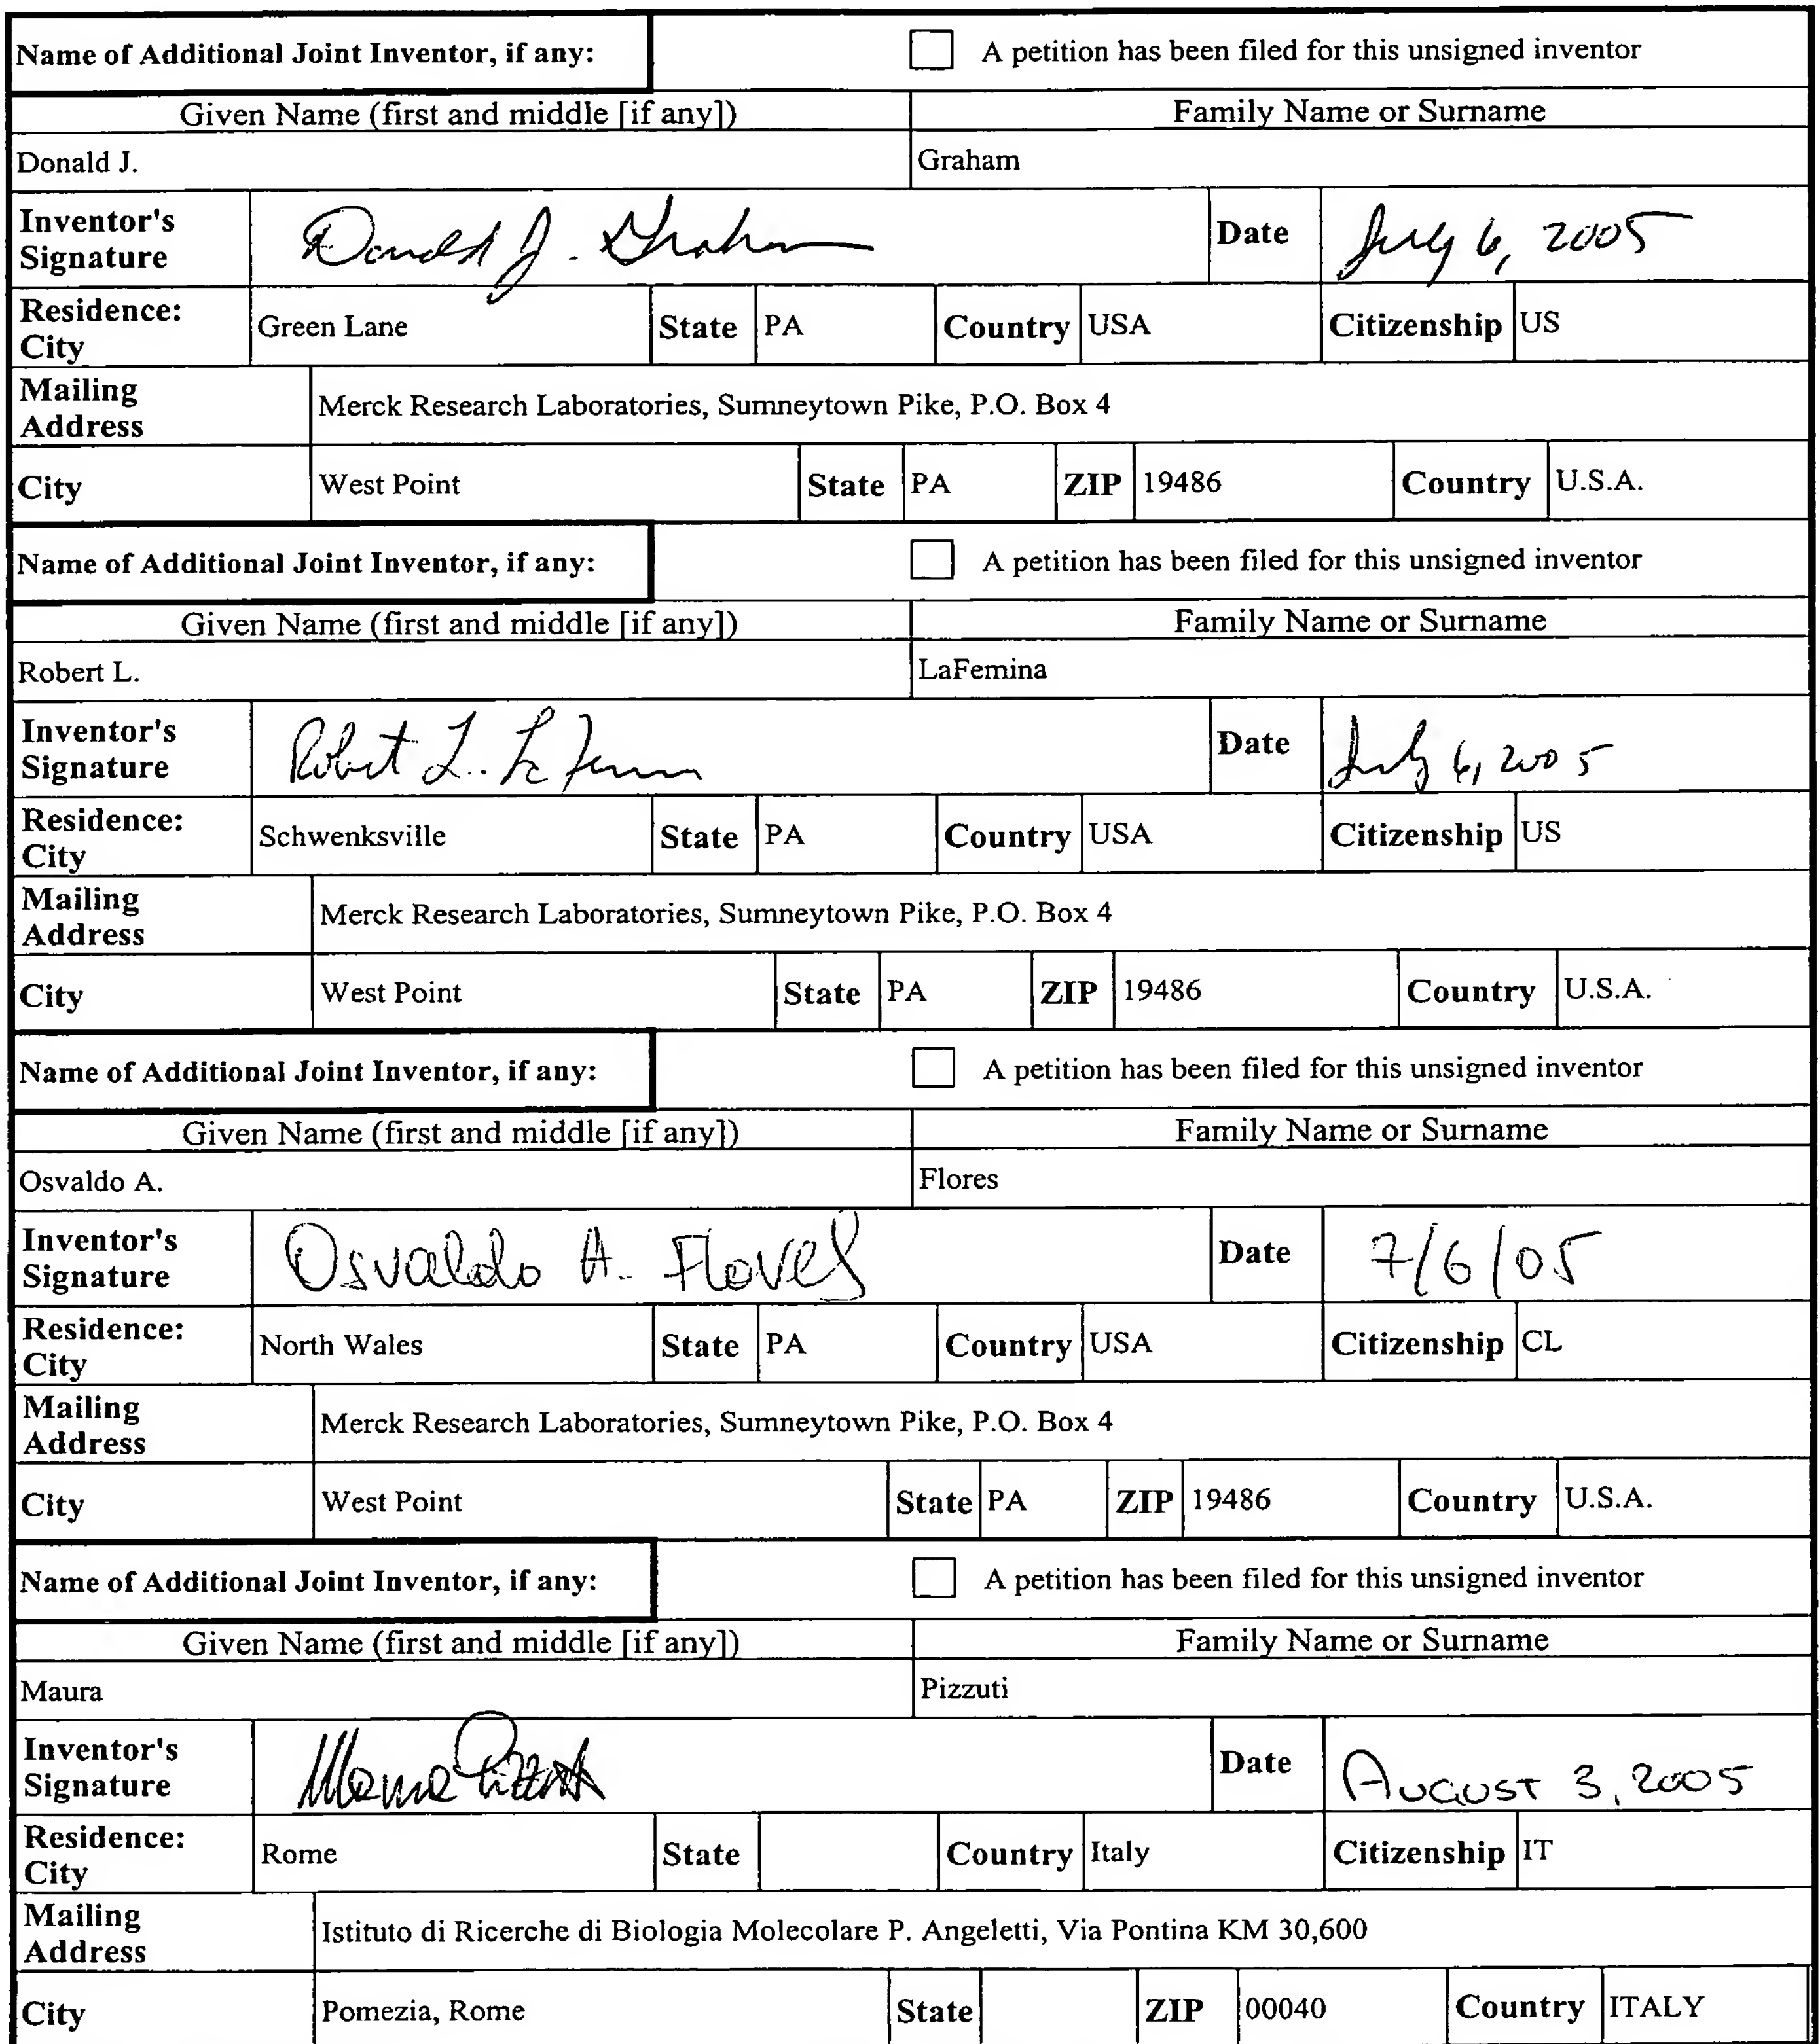 Name of Additional Joint Inventor, if any: A petition has been filed for this unsigned inventor
Given Name (first and middle [if any]) Family Name or Surname
Donald J. Graham
Inventor's Signature Donald J. Graham Date July 6, 2005
Residence: City Green Lane State PA Country USA Citizenship US
Mailing Address Merck Research Laboratories, Sumneytown Pike, P.O. Box 4
City West Point State PA ZIP 19486 Country U.S.A.
Name of Additional Joint Inventor, if any: A petition has been filed for this unsigned inventor
Given Name (first and middle [if any]) Family Name or Surname
Robert L. LaFemina
Inventor's Signature Robert L. LaFemina Date July 6, 2005
Residence: City Schwenksville State PA Country USA Citizenship US
Mailing Address Merck Research Laboratories, Sumneytown Pike, P.O. Box 4
City West Point State PA ZIP 19486 Country U.S.A.
Name of Additional Joint Inventor, if any: A petition has been filed for this unsigned inventor
Given Name (first and middle [if any]) Family Name or Surname
Osvaldo A. Flores
Inventor's Signature Osvaldo A. Flores Date 7/6/05
Residence: City North Wales State PA Country USA Citizenship CL
Mailing Address Merck Research Laboratories, Sumneytown Pike, P.O. Box 4
City West Point State PA ZIP 19486 Country U.S.A.
Name of Additional Joint Inventor, if any: A petition has been filed for this unsigned inventor
Given Name (first and middle [if any]) Family Name or Surname
Maura Pizzuti
Inventor's Signature Maura Pizzuti Date AUGUST 3, 2005
Residence: City Rome State Country Italy Citizenship IT
Mailing Address Istituto di Ricerche di Biologia Molecolare P. Angeletti, Via Pontina KM 30,600
City Pomezia, Rome State ZIP 00040 Country ITALY